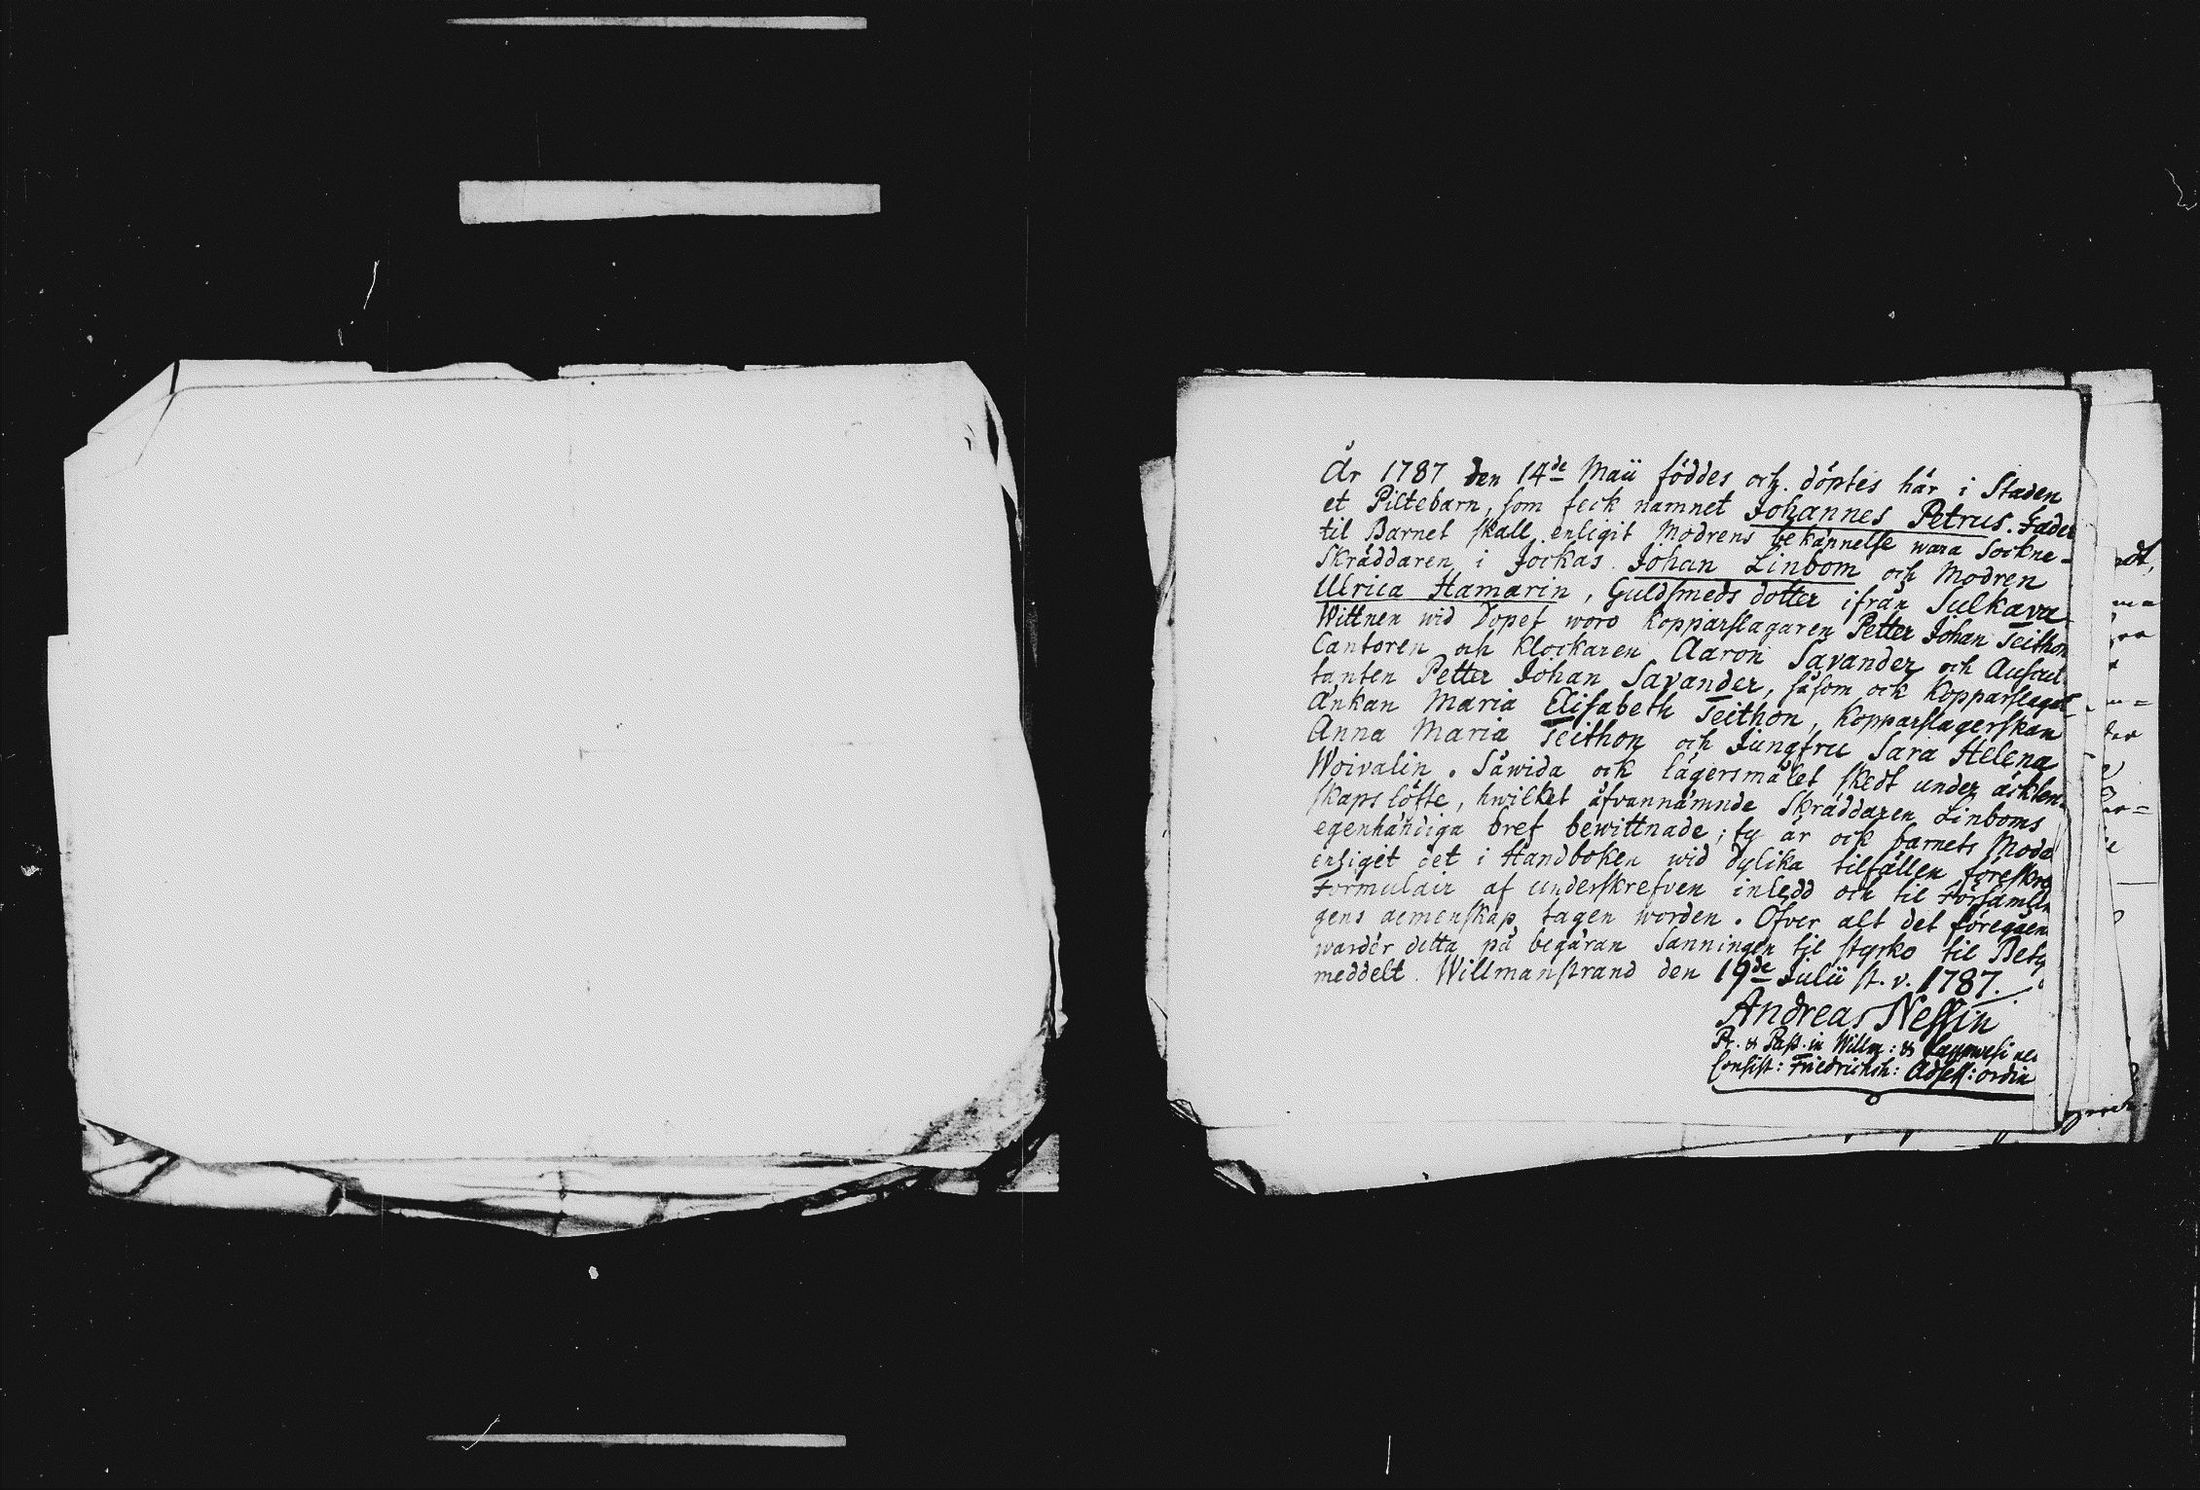 År 1787 den 14de Maii föddes och döptes här i Staden
et Piltebarn, som feck namnet Johannes Petrus. Fader
til Barnet skall enligit Modrens bekännelse wara Sockne-
Skräddaren i Jockas Johan Linbom och Modren
Ulrica Hamarin, Guldsmeds dotter ifrån Sulkava
Wittnen wid Dopet woro Kopparslagaren Petter Johan Teithon
Cantoren och Klockaren Aaron Savander och Auscul
tanten Petter Johan Savander, såsom ock Kopparslagar
Änkan Maria Elisabeth Teithon, Kopparslagerskan
Anna Maria Teithon och Jungfru Sara Helena
Woivalin. Såwida ock lägersmålet skedt under äckten
skaps löfte, hwilket åfvannämnde Skräddaren Linboms
egenhändiga bref bewittnade; ty är ock barnets Mode
enligit det i Handboken wid dylika tilfällen föreskre
Formulair af underskrefven inledd och til Församlin
gens gemenskap tagen worden. Ofver alt det föregåen
warder detta på begäran Sanningen til styrko til Bety
meddelt. Willmanstrand den 19de Julii st. v. 1787.
Andreas Nessin
Pr. & Past. in Willm: &
Consist: Friedrichsh: Adsess: ordin